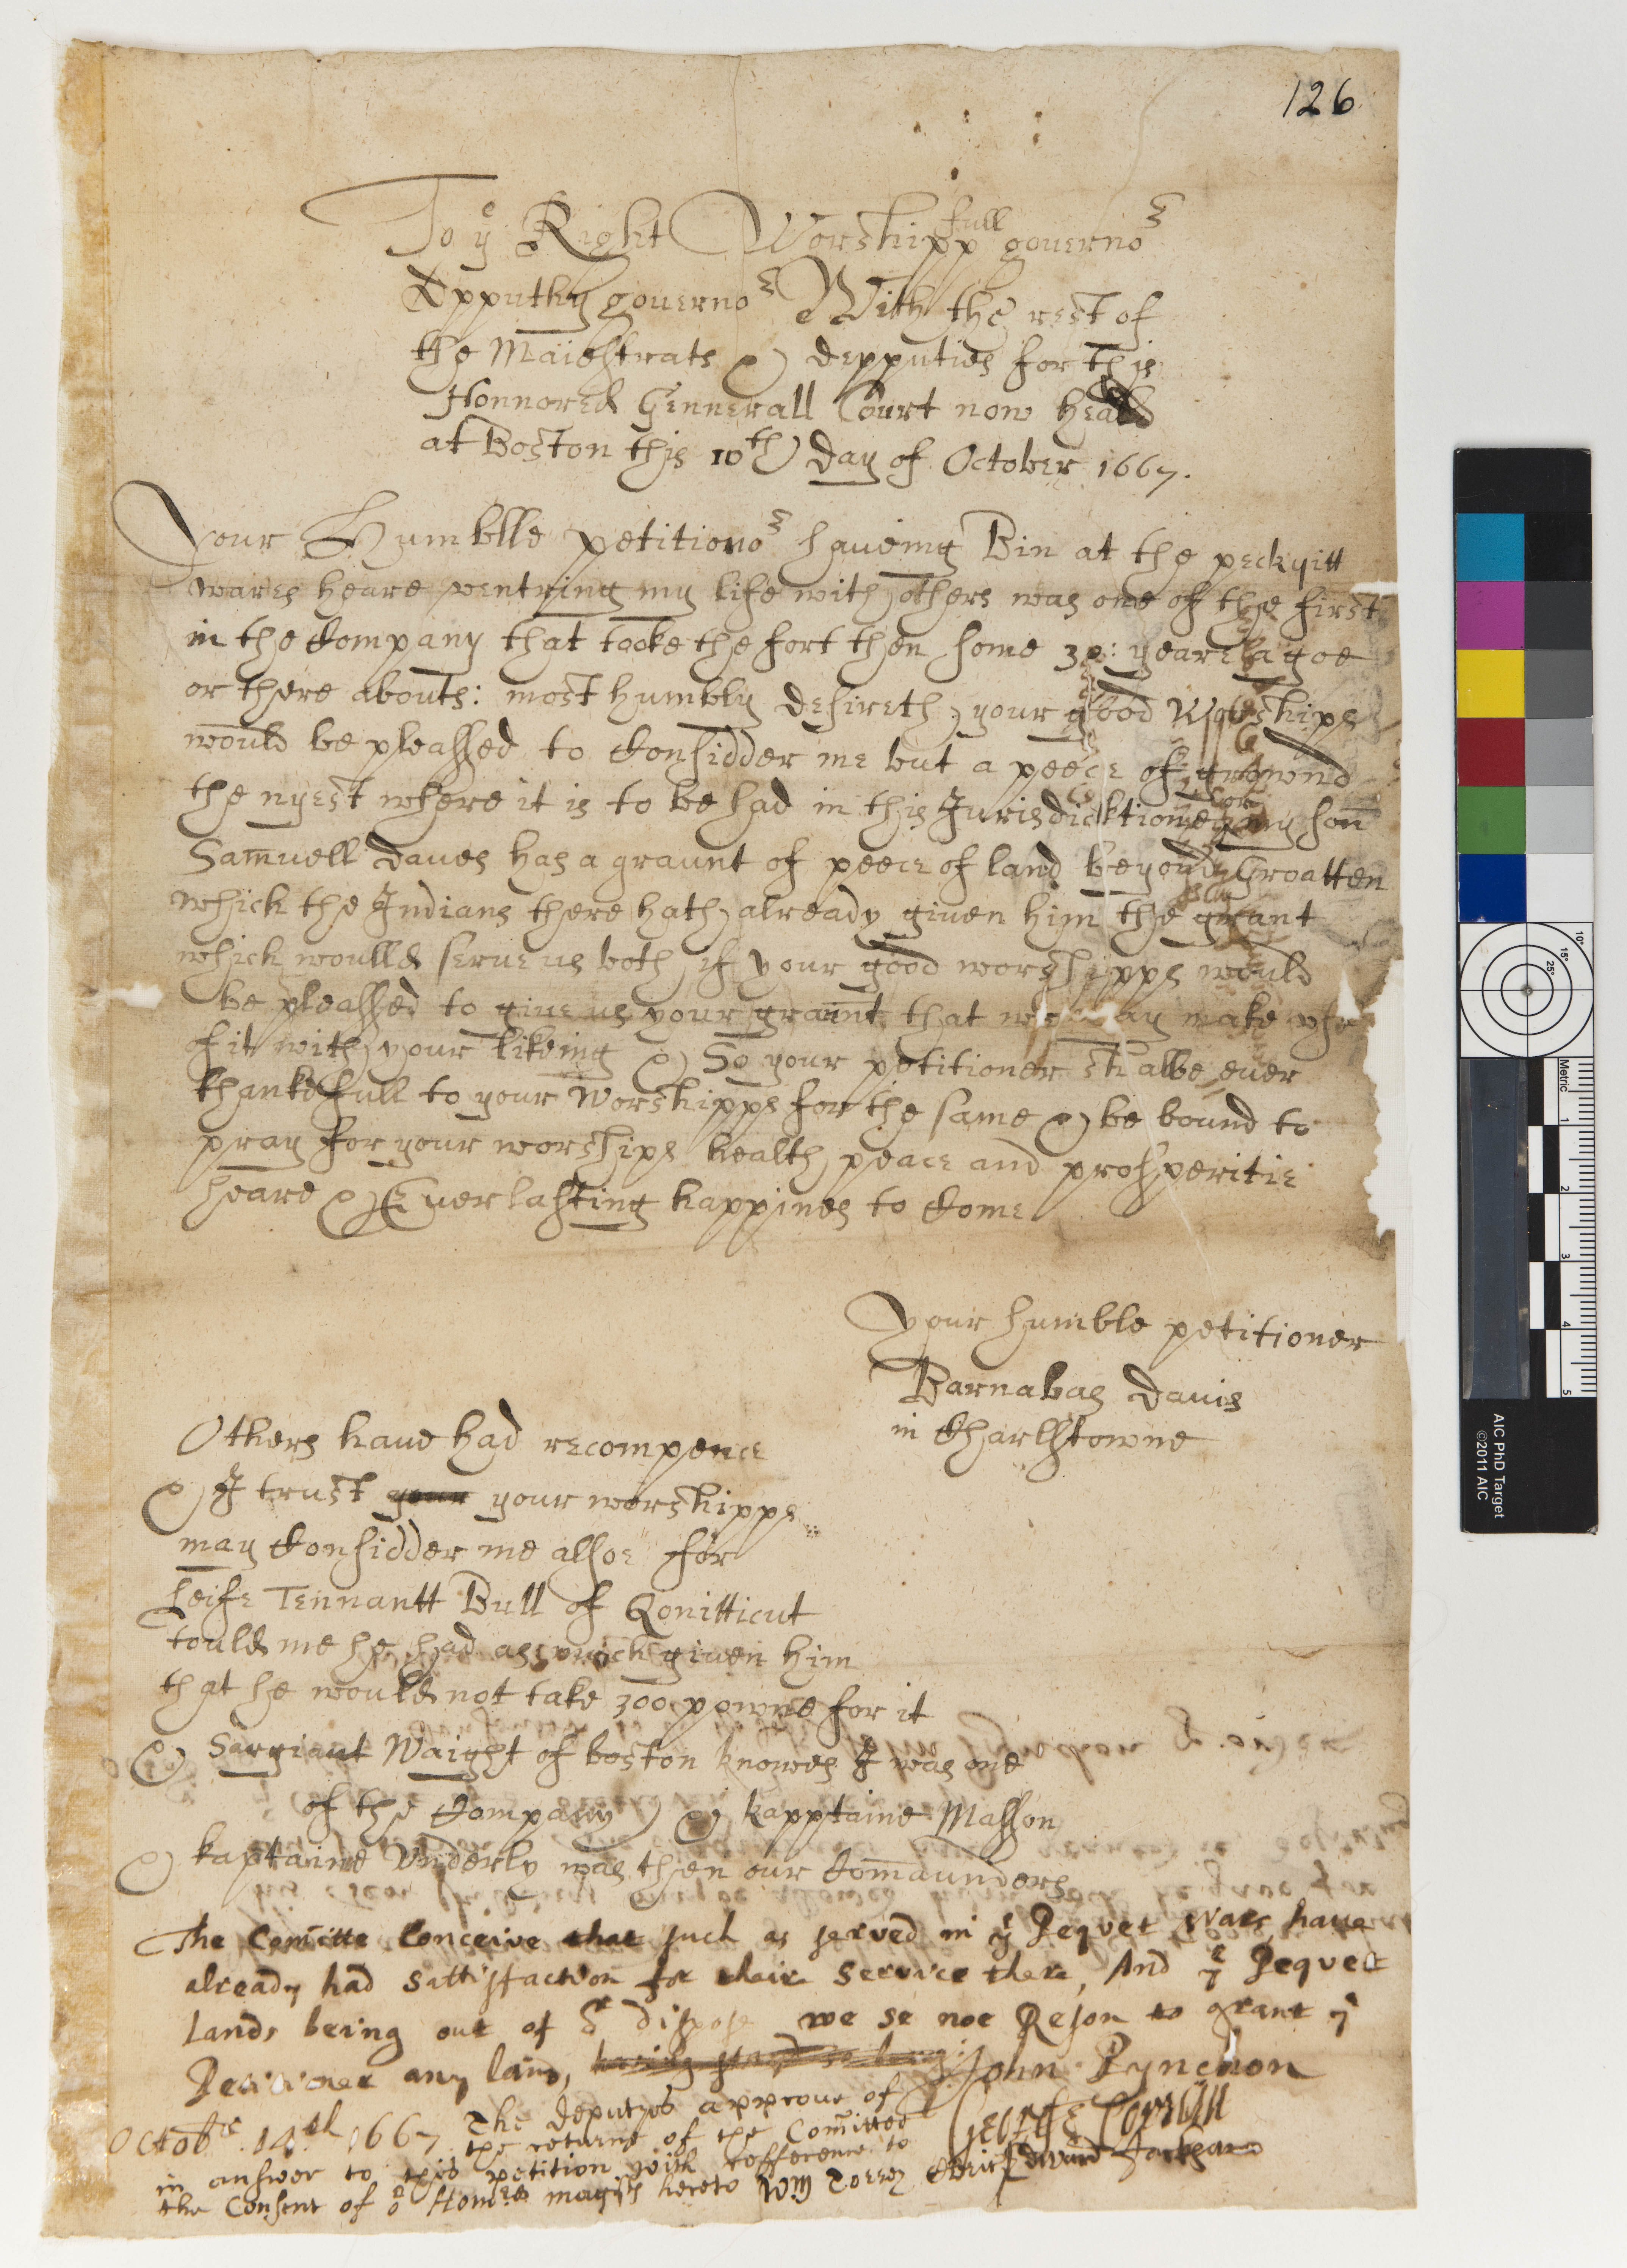 126
To ye Right Worshippfull governor
Depputhy governor With the rest of
the Maiestrats & depputies for this
Honnored Gennerall Court now heald
at Boston this 10th day of October 1667.
Your Humblle petitionor haueing Bin at the peckyitt
wares heare ventring my life with others was one of the first
in the Company that tooke the fort then some 30: yeares agoe
or there abouts: most humbly desireth your good Worships
would be pleassed to Konsidder me but a peece of grownd
the nyest where it is to be had in this Jurisdicktione for my sonn
Samuell Daues has a graunt of peece of land beyond Groatten
which the Indians there hath already given him the grant
which woulld serue us both if your good worshipps would
be pleassed to giue us your graunt that we may make vse
of it with your likeing & So your petitioner shalbe euer
thankefull to your Worshipps for the same & be bound to
pray for your worships health peace and prosperitie
heare & Euerlasting happines to Kome
Your humble petitioner
Barnabas Dauis
in Charlstowne
Others haue had recompence
& I trust your your worshipps
may Konsidder me allsoe for
leife Tennantt Bull of Qonitticut
tould me he had as much given him
that he would not take 300 pownd for it
& Sargiant Waight of boston knowes I was one
of the Kompany & Kapptaine Masson
& Kaptaine Vnderly was then our Komaunders
The Comitte Conceive that such as served in ye Pequet wars have
already had sattisfaction for their service there, And ye Pequet
Lands being out of or dispose we se not Reson to grant ye
Petitioner any land, John Pynchon
George Corwin
Edward Jackson
Octobr 14th 1667 The deputyes approue of
the returne of the Comittee
in answer to this petition with refference to
the Consent of or Honrd magists hereto Wm Torrey Cleric
AIC PhD Target
©2011 AIC
Metric
1
2
3
4
5
10°
15°
25°